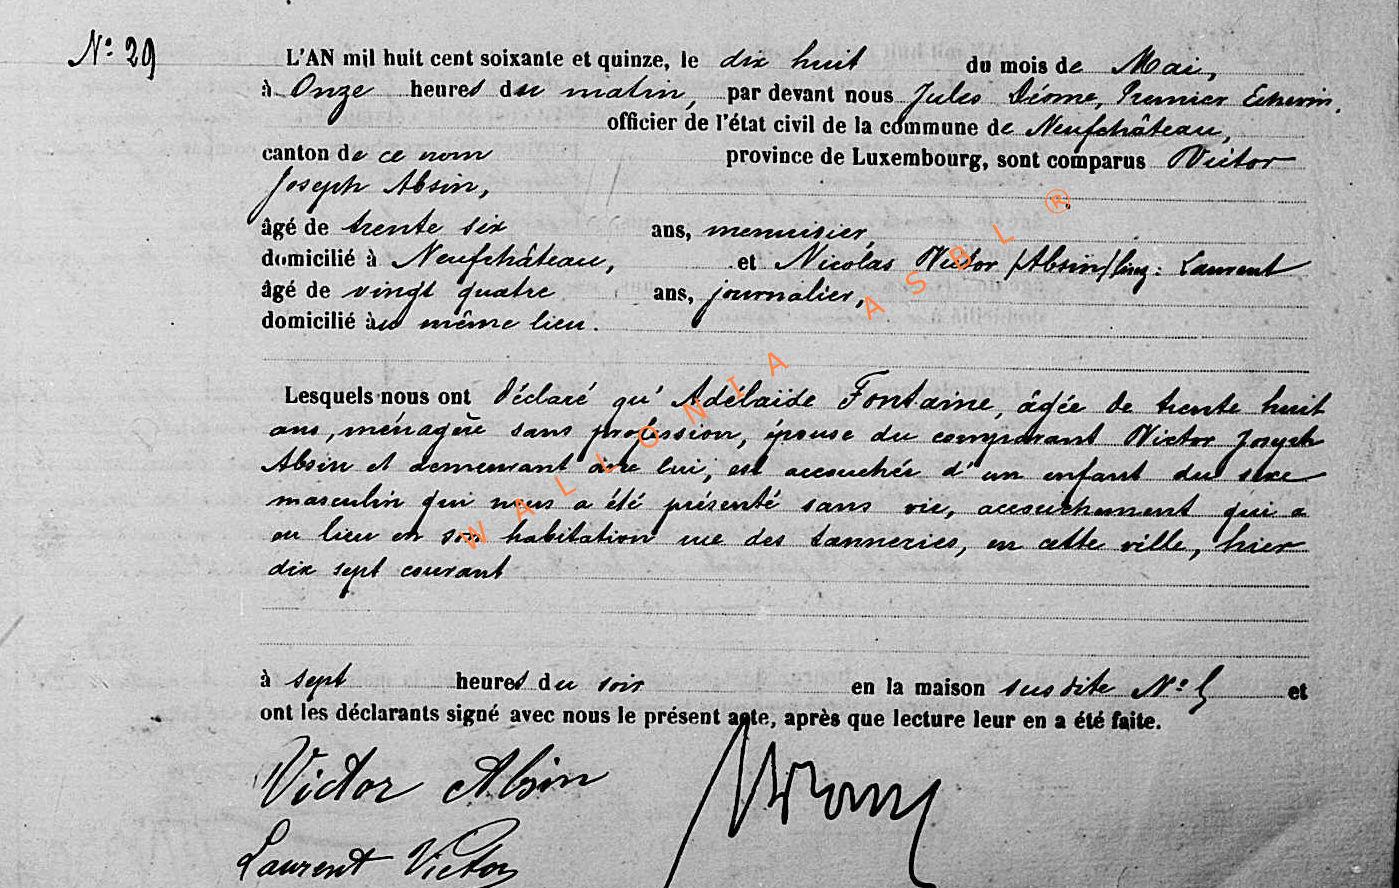 N° 29
L'AN mil huit cent soixante et quinze, le dix huit du mois de Mai,
à Onze heures du matin, par devant nous Jules Déome, Premier Echevin,
officier de l'état civil de la commune de Neufchâteau,
canton de ce nom province de Luxembourg, sont comparus Victor
Joseph Absin,
âgé de trente six ans, menuisier,
domicilié à Neufchâteau, et Nicolas Victor /Absin/ Laurent
âgé de vingt quatre ans, journalier,
domicilié àu même lieu.
Lesquels nous ont déclaré qu'Adélaïde Fontaine, âgée de trente huit
ans, ménagère sans profession, épouse du comparant Victor Joseph
Absin et demeurant avec lui, est accouchée d'un enfant du sexe
masculin qui nous a été présenté sans vie, accouchement qui a
eu lieu en son habitation rue des tanneries, en cette ville, hier
dix sept courant
à sept heures du soir en la maison susdite N° 5 et
ont les déclarants signé avec nous le présent acte, après que lecture leur en a été faite.
Victor Absin
Laurent Victor
WALLONIA ASBL ®